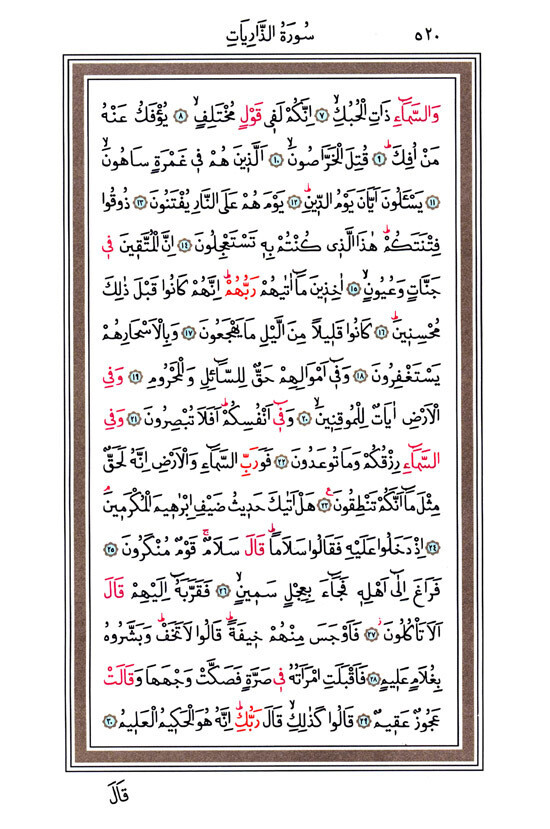 سُورَةُ الذَّارِيَاتِ ٥٢٠
وَالسَّمَٓاءِ ذَاتِ الْحُبُكِۙ ﴿٧﴾ اِنَّكُمْ لَف۪ي قَوْلٍ مُخْتَلِفٍۙ ﴿٨﴾ يُؤْفَكُ عَنْهُ
مَنْ اُفِكَۜ ﴿٩﴾ قُتِلَ الْخَرَّاصُونَۙ ﴿١٠﴾ اَلَّذ۪ينَ هُمْ ف۪ي غَمْرَةٍ سَاهُونَۙ
﴿١١﴾ يَسْـَٔلُونَ اَيَّانَ يَوْمُ الدّ۪ينِۜ ﴿١٢﴾ يَوْمَ هُمْ عَلَى النَّارِ يُفْتَنُونَ ﴿١٣﴾ ذُوقُوا
فِتْنَتَكُمْۜ هٰذَا الَّذ۪ي كُنْتُمْ بِه۪ تَسْتَعْجِلُونَ ﴿١٤﴾ اِنَّ الْمُتَّق۪ينَ ف۪ي
جَنَّاتٍ وَعُيُونٍۙ ﴿١٥﴾ اٰخِذ۪ينَ مَٓا اٰتٰيهُمْ رَبُّهُمْۜ اِنَّهُمْ كَانُوا قَبْلَ ذٰلِكَ
مُحْسِن۪ينَۜ ﴿١٦﴾ كَانُوا قَل۪يلاً مِنَ الَّيْلِ مَا يَهْجَعُونَ ﴿١٧﴾ وَبِالْاَسْحَارِ هُمْ
يَسْتَغْفِرُونَ ﴿١٨﴾ وَف۪ٓي اَمْوَالِهِمْ حَقٌّ لِلسَّٓائِلِ وَالْمَحْرُومِ ﴿١٩﴾ وَفِي
الْاَرْضِ اٰيَاتٌ لِلْمُوقِن۪ينَۙ ﴿٢٠﴾ وَف۪ٓي اَنْفُسِكُمْۜ اَفَلَا تُبْصِرُونَ ﴿٢١﴾ وَفِي
السَّمَٓاءِ رِزْقُكُمْ وَمَا تُوعَدُونَ ﴿٢٢﴾ فَوَرَبِّ السَّمَٓاءِ وَالْاَرْضِ اِنَّهُ لَحَقٌّ
مِثْلَ مَٓا اَنَّكُمْ تَنْطِقُونَ۟ ﴿٢٣﴾ هَلْ اَتٰيكَ حَد۪يثُ ضَيْفِ اِبْرٰه۪يمَ الْمُكْرَم۪ينَۢ
﴿٢٤﴾ اِذْ دَخَلُوا عَلَيْهِ فَقَالُوا سَلَاماًۜ قَالَ سَلَامٌۚ قَوْمٌ مُنْكَرُونَ ﴿٢٥﴾
فَرَاغَ اِلٰٓى اَهْلِه۪ فَجَٓاءَ بِعِجْلٍ سَم۪ينٍۙ ﴿٢٦﴾ فَقَرَّبَهُٓ اِلَيْهِمْ قَالَ
اَلَا تَأْكُلُونَۘ ﴿٢٧﴾ فَاَوْجَسَ مِنْهُمْ خ۪يفَةًۜ قَالُوا لَا تَخَفْۜ وَبَشَّرُوهُ
بِغُلَامٍ عَل۪يمٍ ﴿٢٨﴾ فَاَقْبَلَتِ امْرَاَتُهُ ف۪ي صَرَّةٍ فَصَكَّتْ وَجْهَهَا وَقَالَتْ
عَجُوزٌ عَق۪يمٌ ﴿٢٩﴾ قَالُوا كَذٰلِكِۙ قَالَ رَبُّكِۜ اِنَّهُ هُوَ الْحَك۪يمُ الْعَل۪يمُ ﴿٣٠﴾
قَالَ